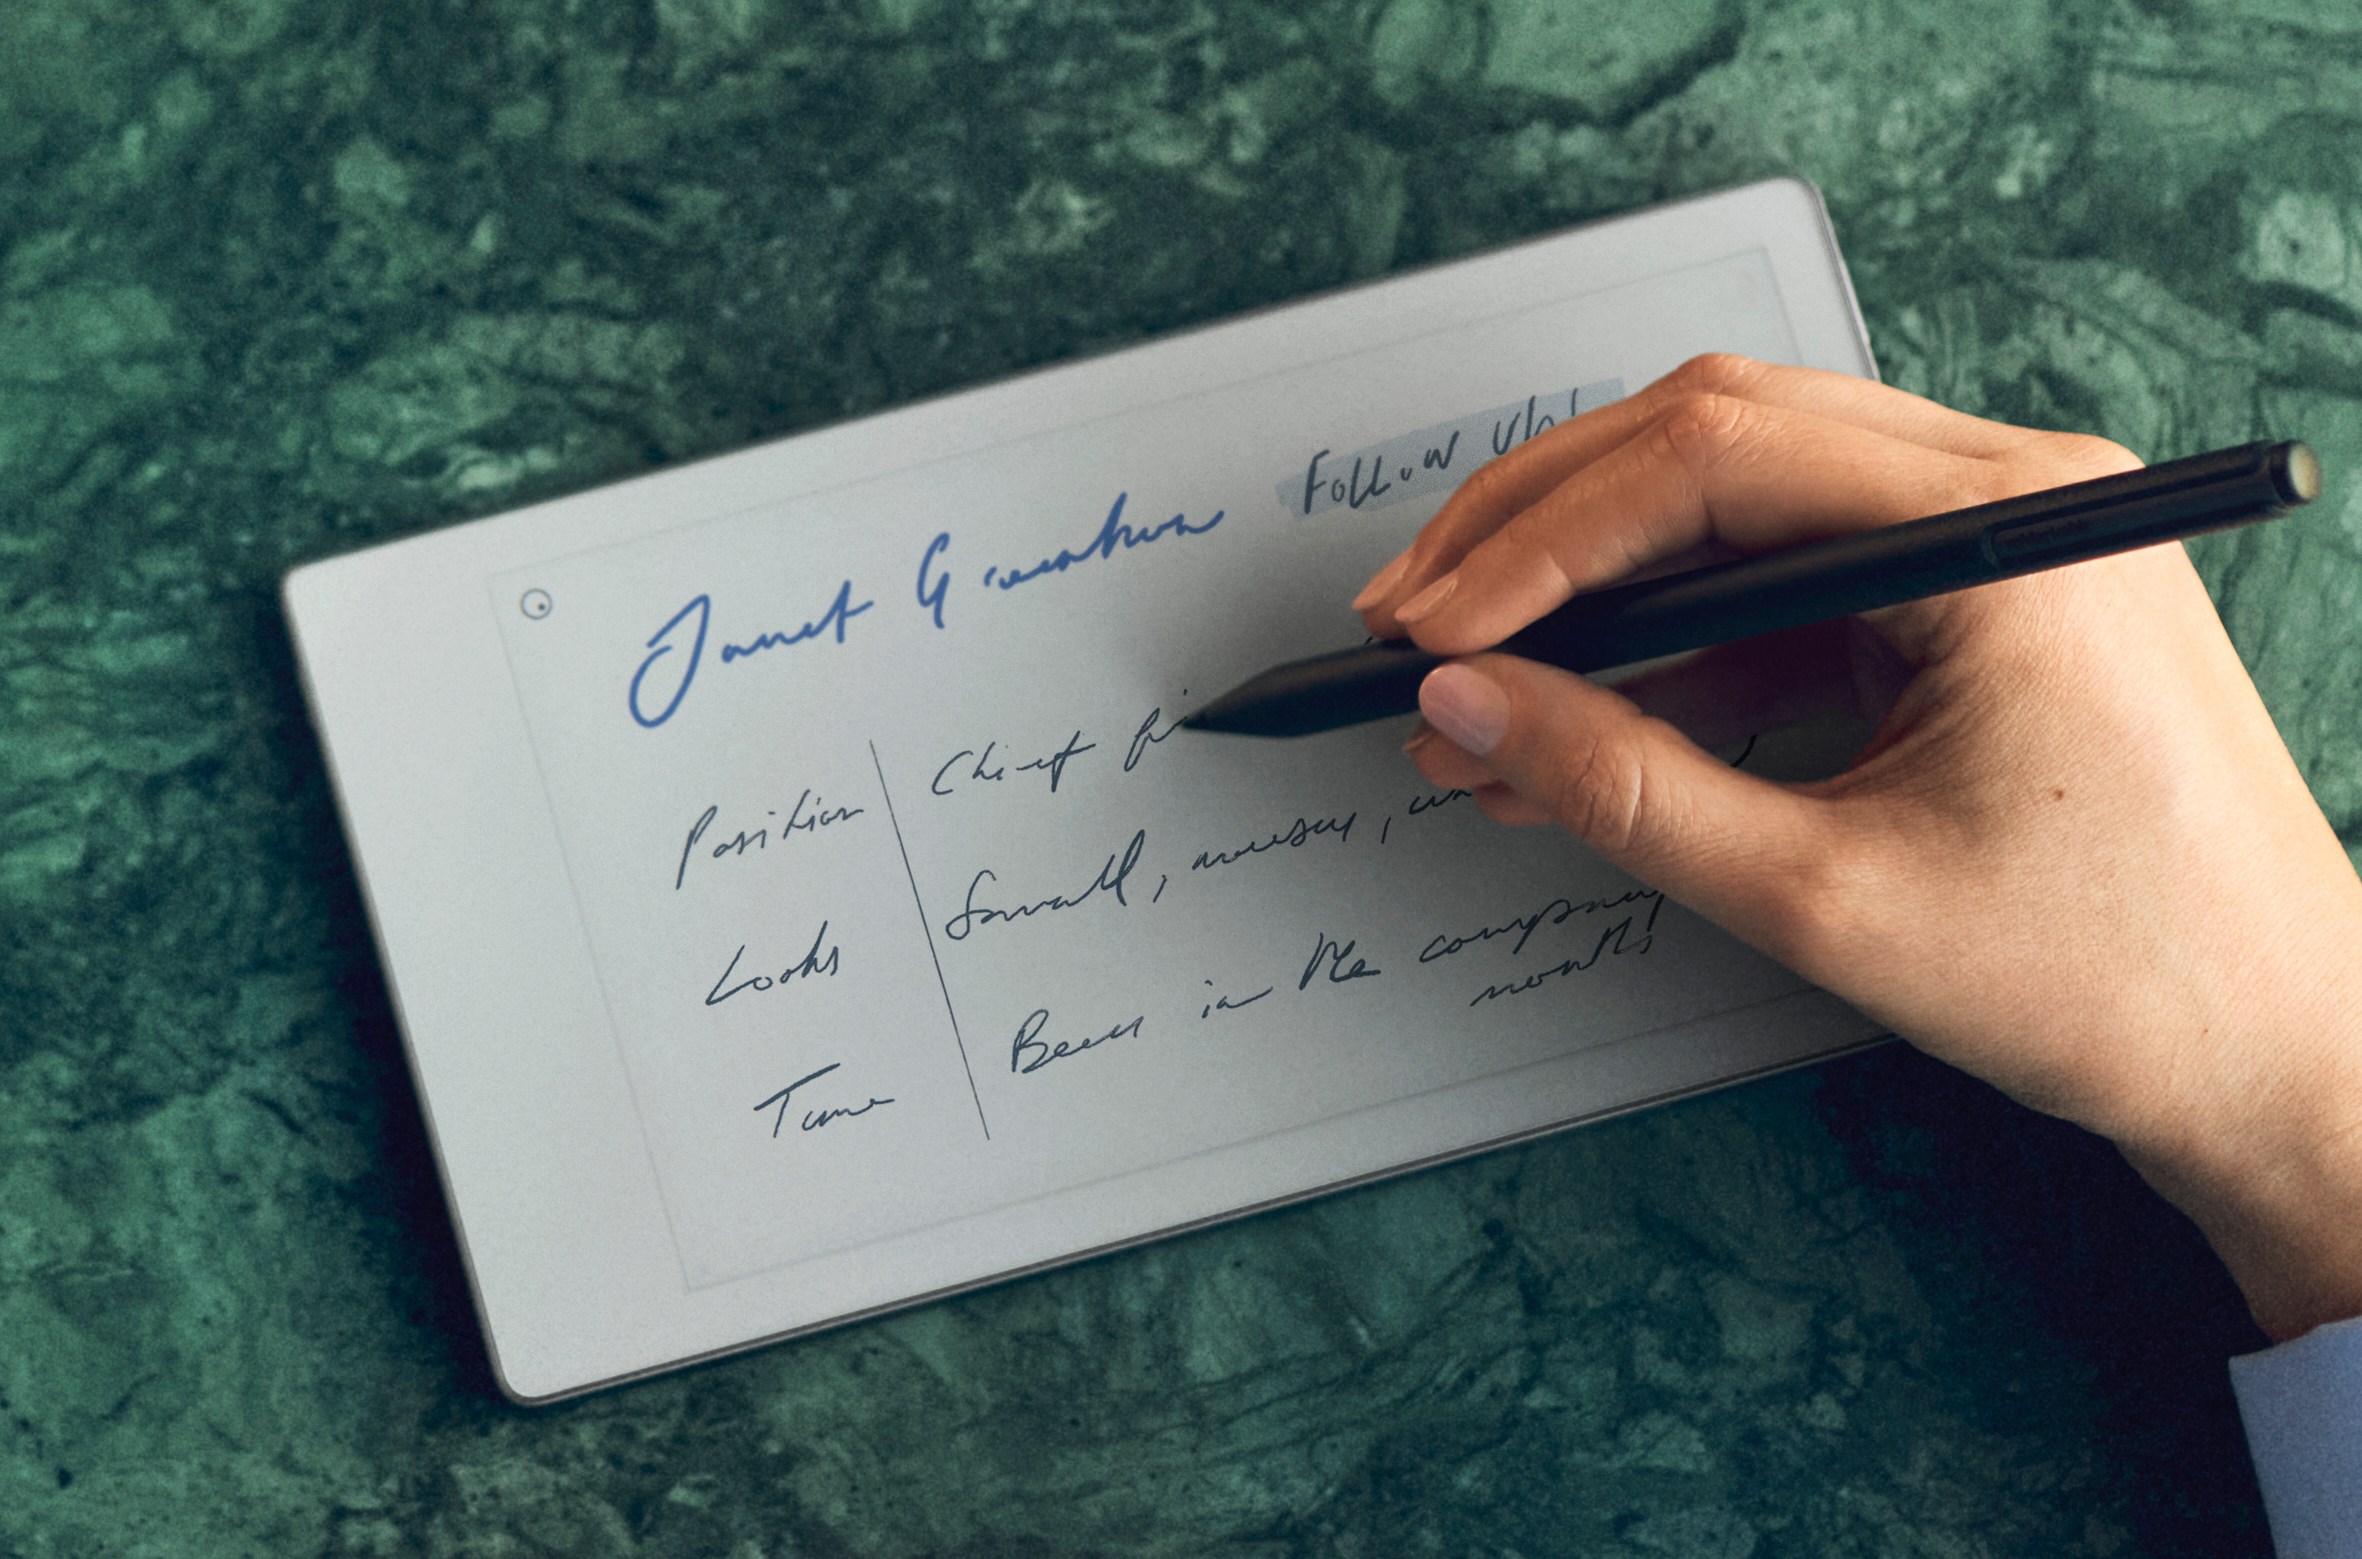 Janet Follow Up!
Position Chief fi
Looks Small, mousy,
Time Been in the company
months